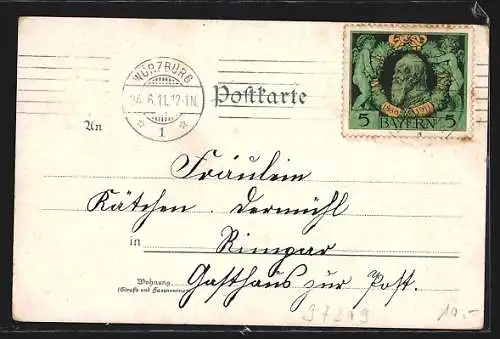 WÜRZBURG
24.6.11.12-1N.
1
Postkarte
5 BAYERN 5
An
Fräulein
Kätchen Dermühl
in Rimpar
Wohnung
(Straße und Hausnummer)
Gasthaus zur Post.
97209
10.-